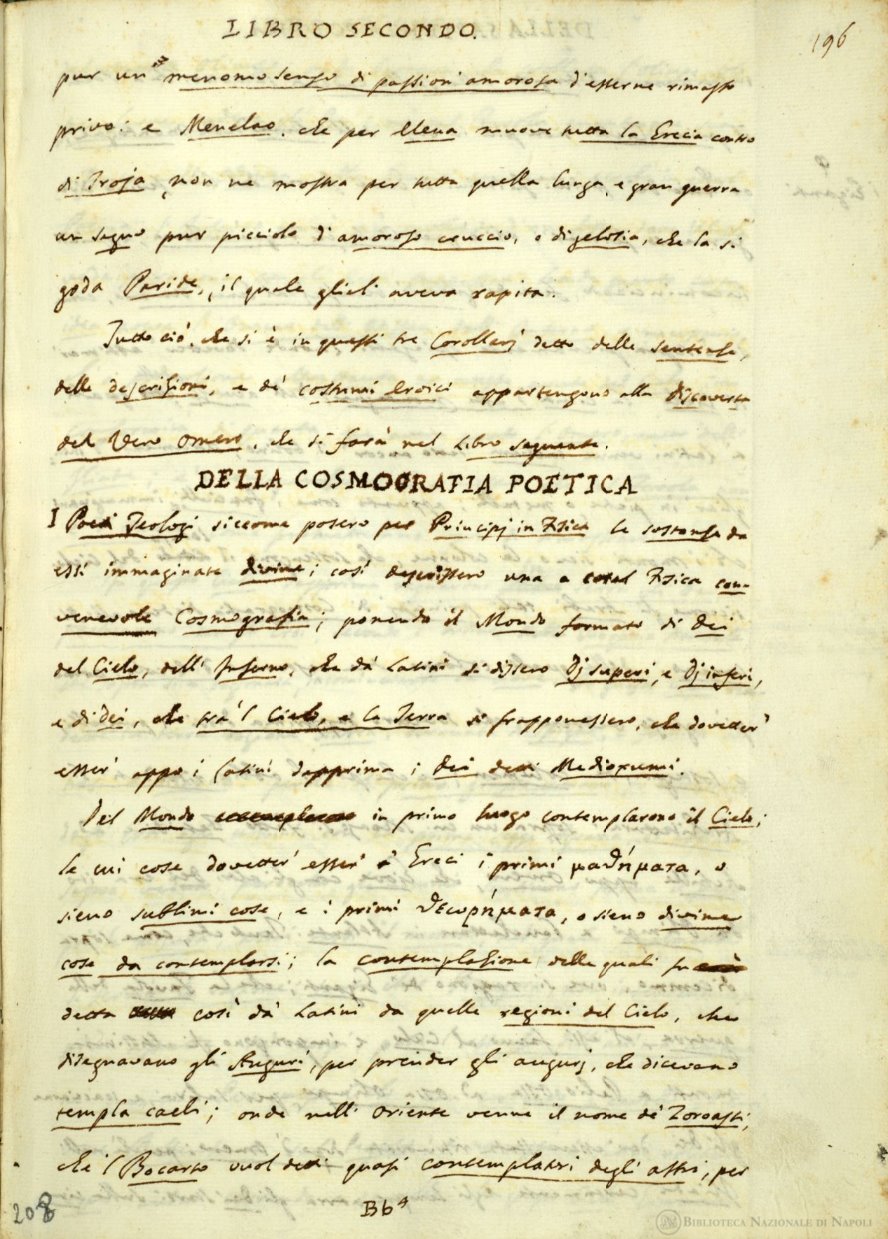 LIBRO SECONDO.
196
pur un menomo senso di passioni amorosa d'esserne rimasto
privo: e Menelao, che per Elena muove tutta la Grecia contro
di Troja, non ne mostra per tutta quella lunga, e gran guerra
un segno pur picciolo d'amoroso cruccio, o di gelosia, che la si
goda Paride, il quale gliel' aveva rapita.
Tutto ciò, che si è in questi tre Corollarj detto delle sentenze,
delle descrizioni, e de' costumi Eroici appartengono alla Discoverta
del Vero Omero, che si farà nel Libro seguente.
DELLA COSMOGRAFIA POETICA
I Poeti Teologi siccome posero per Principj in Fisica le sostanze da
essi immaginate divine; così descrissero una a cotal Fisica con-
venevole Cosmografia; ponendo il Mondo formato di Dei
del Cielo, dell' Inferno, che da' Latini si dissero Dj superi, e Dj inferi,
e di Dei, che fra 'l Cielo, e la Terra si frapponessero, che dovetter'
esser' appo i Latini dapprima i Dei detti Medioxumi.
Del Mondo in primo luogo contemplarono il Cielo;
le cui cose dovetter' esser a' Greci i primi μαθήματα, o
sieno sublimi cose, e i primi θεωρήματα, o sieno divine
cose da contemplarsi; la contemplazione delle quali fu
detta così da' Latini da quelle regioni del Cielo, che
disegnavano gli Auguri, per prender gli augurj, che dicevano
templa caeli; onde nell' Oriente venne il nome de' Zoroasti,
che 'l Bocarto vuol detti quasi contemplatori degli astri, per
208
Bb4
BIBLIOTECA NAZIONALE DI NAPOLI